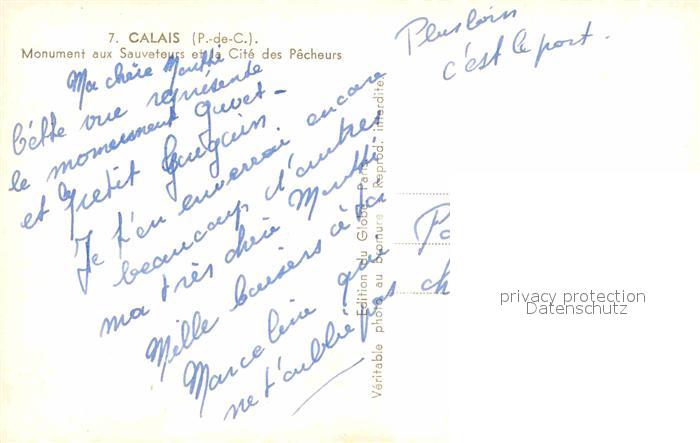 7. CALAIS (P.-de-C.).
Monument aux Sauveteurs et la Cité des Pêcheurs
Plus loin
c'est le port.
Ma chère
Cette vue représente
le Gavet-
et le petit Gauguin
Je t'en enverrai encore
beaucoup d'autres
ma très chère
Mille baisers à ta
Marceline que
ne t'oublie pas
Edition du Globe Paris
Véritable photo au bromure Reprod. interdite
privacy protection
Datenschutz